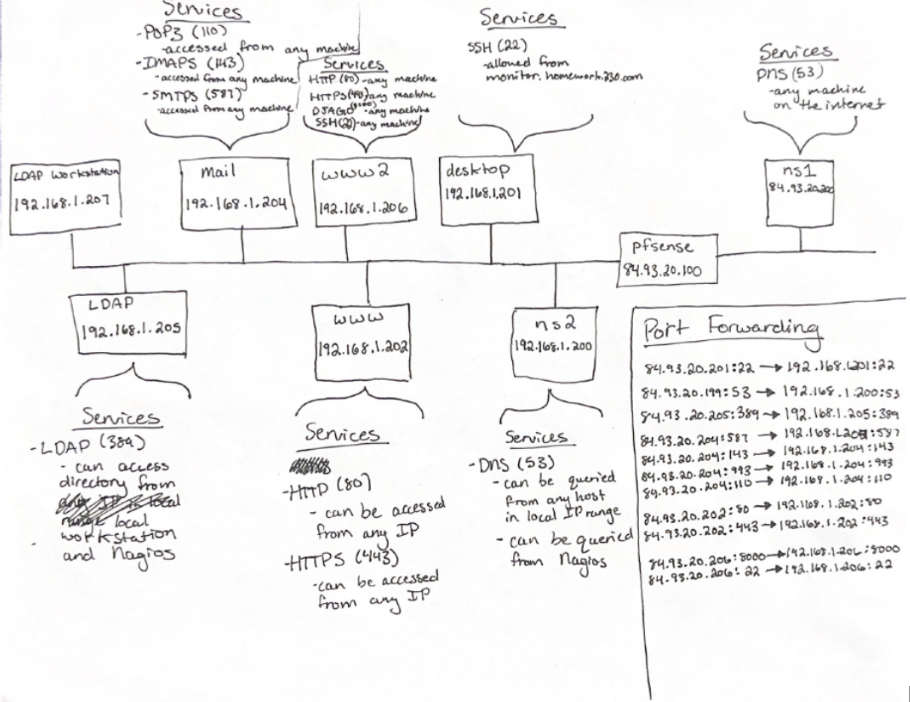 Services
-POP3 (110)
-accessed from any machine
-IMAPS (143)
-accessed from any machine
-SMTPS (587)
-accessed from any machine
Services
HTTP (80)-any machine
HTTPS(443)any machine
-any machine
SSH(22)-any machine
Services
SSH (22)
-allowed from
monitor.homework230.com
Services
DNS (53)
-any machine
on the internet
LDAP Workstation
192.168.1.207
mail
192.168.1.204
www2
192.168.1.206
desktop
192.168.1.201
ns1
84.93.20.200
pfsense
84.93.20.100
LDAP
192.168.1.205
www
192.168.1.202
ns2
192.168.1.200
Services
-LDAP (389)
- can access
directory from
local
workstation
and Nagios
Services
-HTTP (80)
- can be accessed
from any IP
-HTTPS (443)
-can be accessed
from any IP
Services
-DNS (53)
- can be queried
from any host
in local IP range
- can be queried
from Nagios
Port Forwarding
84.93.20.201:22 → 192.168.1.201:22
84.93.20.199:53 → 192.168.1.200:53
84.93.20.205:389 → 192.168.1.205:389
84.93.20.204:587 → 192.168.1.204:587
84.93.20.204:143 → 192.168.1.204:143
84.93.20.204:993 → 192.168.1.204:993
84.93.20.204:110 → 192.168.1.204:110
84.93.20.202:80 → 192.168.1.202:80
84.93.20.202:443 → 192.168.1.202:443
84.93.20.206:8000 → 192.168.1.206:8000
84.93.20.206:22 → 192.168.1.206:22